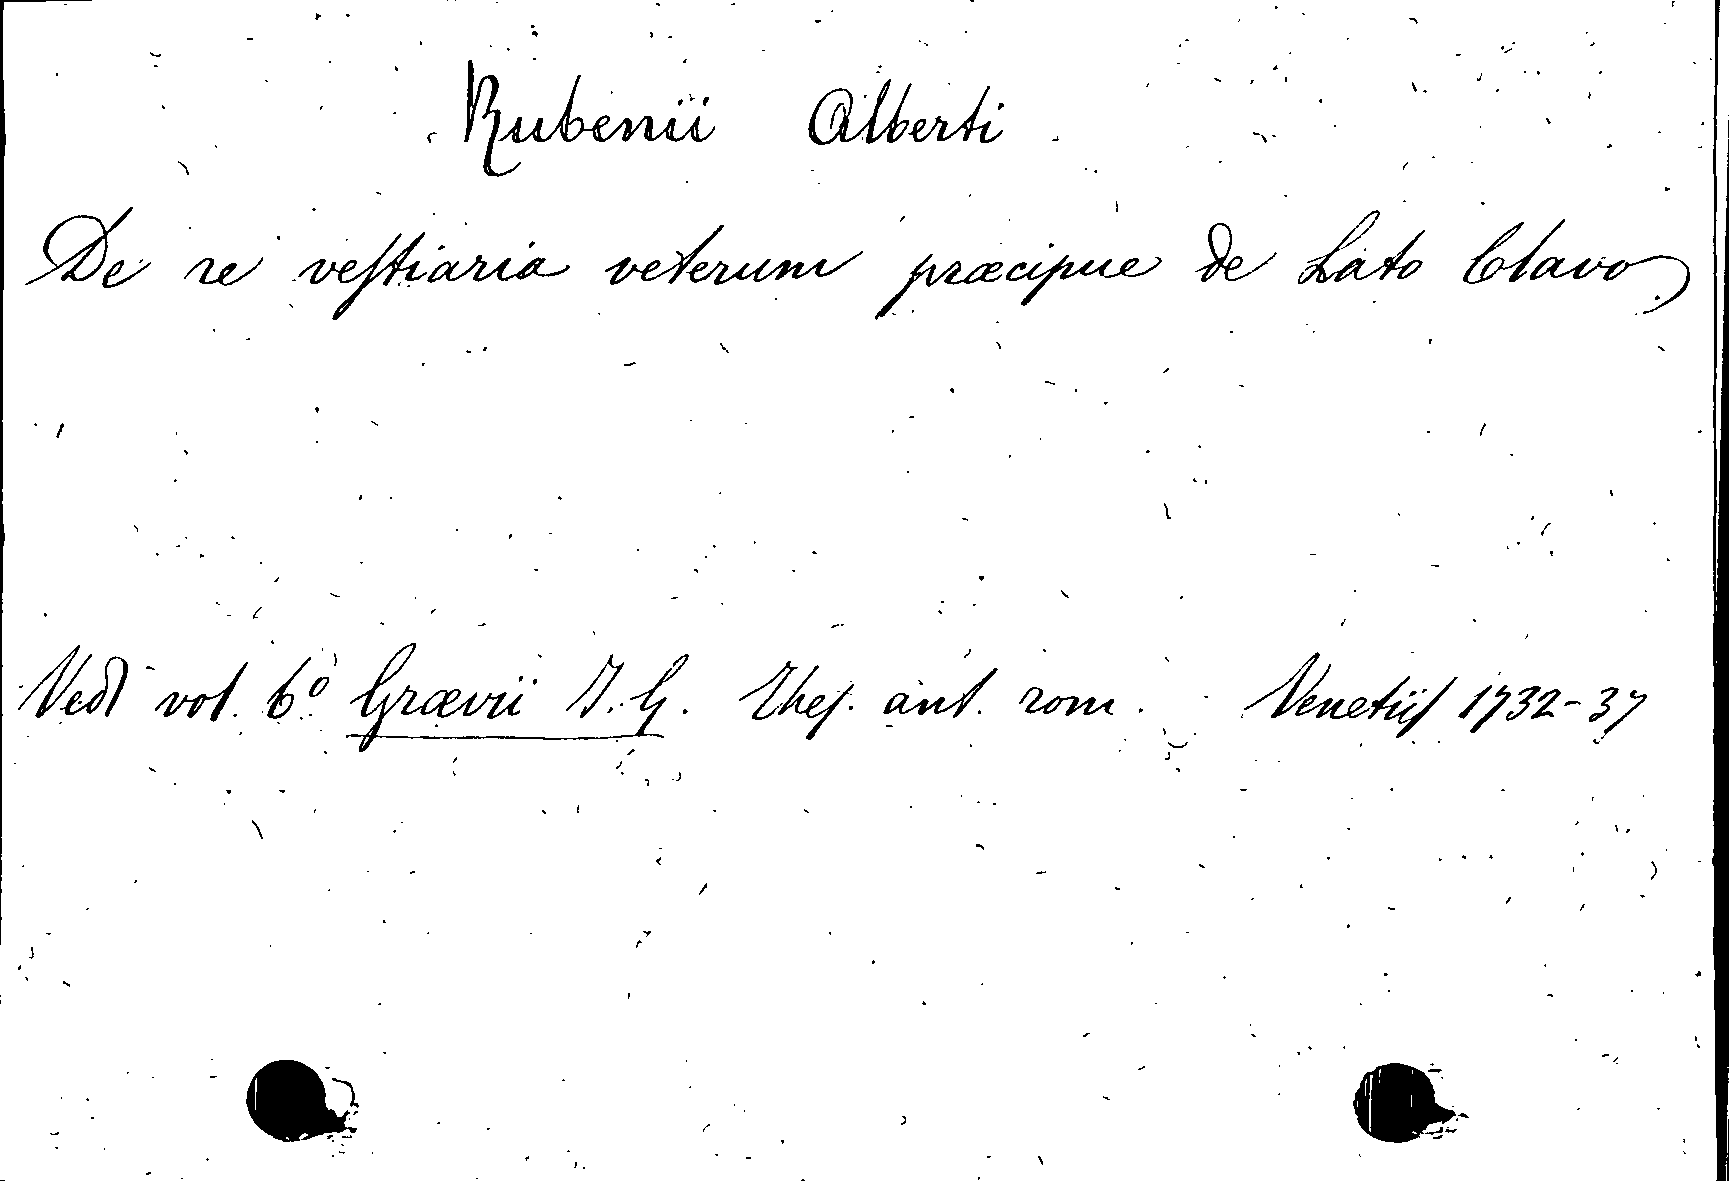 Rubenii Alberti
De re veſtiaria veterum præcipue de Lato Clavo
Vedi vol. 6º Grævii J. G. Theſ. ant. rom. Venetiiſ 1732-37